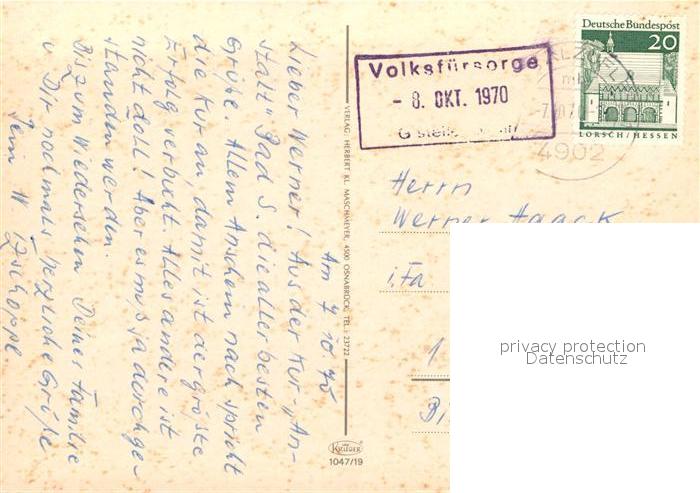 Am 7 10 70
Lieber Werner! Aus der Kur-"An-
stalt" Bad S. die aller besten
Grüße. Allem Anschein nach spricht
die Kur an, damit ist der größte
Erfolg verbucht. Alles andere ist
nicht doll! Aber es muß ja durchge-
standen werden.
Bis zum Wiedersehen Deiner Familie
u Dir nochmals herzliche Grüße
Dein W.
VERLAG HERBERT KL. MASCHMEYER, 4500 OSNABRÜCK, TEL.: 23722
KRÜGER
1047/19
Volksfürsorge
- 8. OKT. 1970
Deutsche Bundespost
20
LORSCH/HESSEN
4902
Herrn
Werner Haack
i. Fa
1
privacy protection
Datenschutz